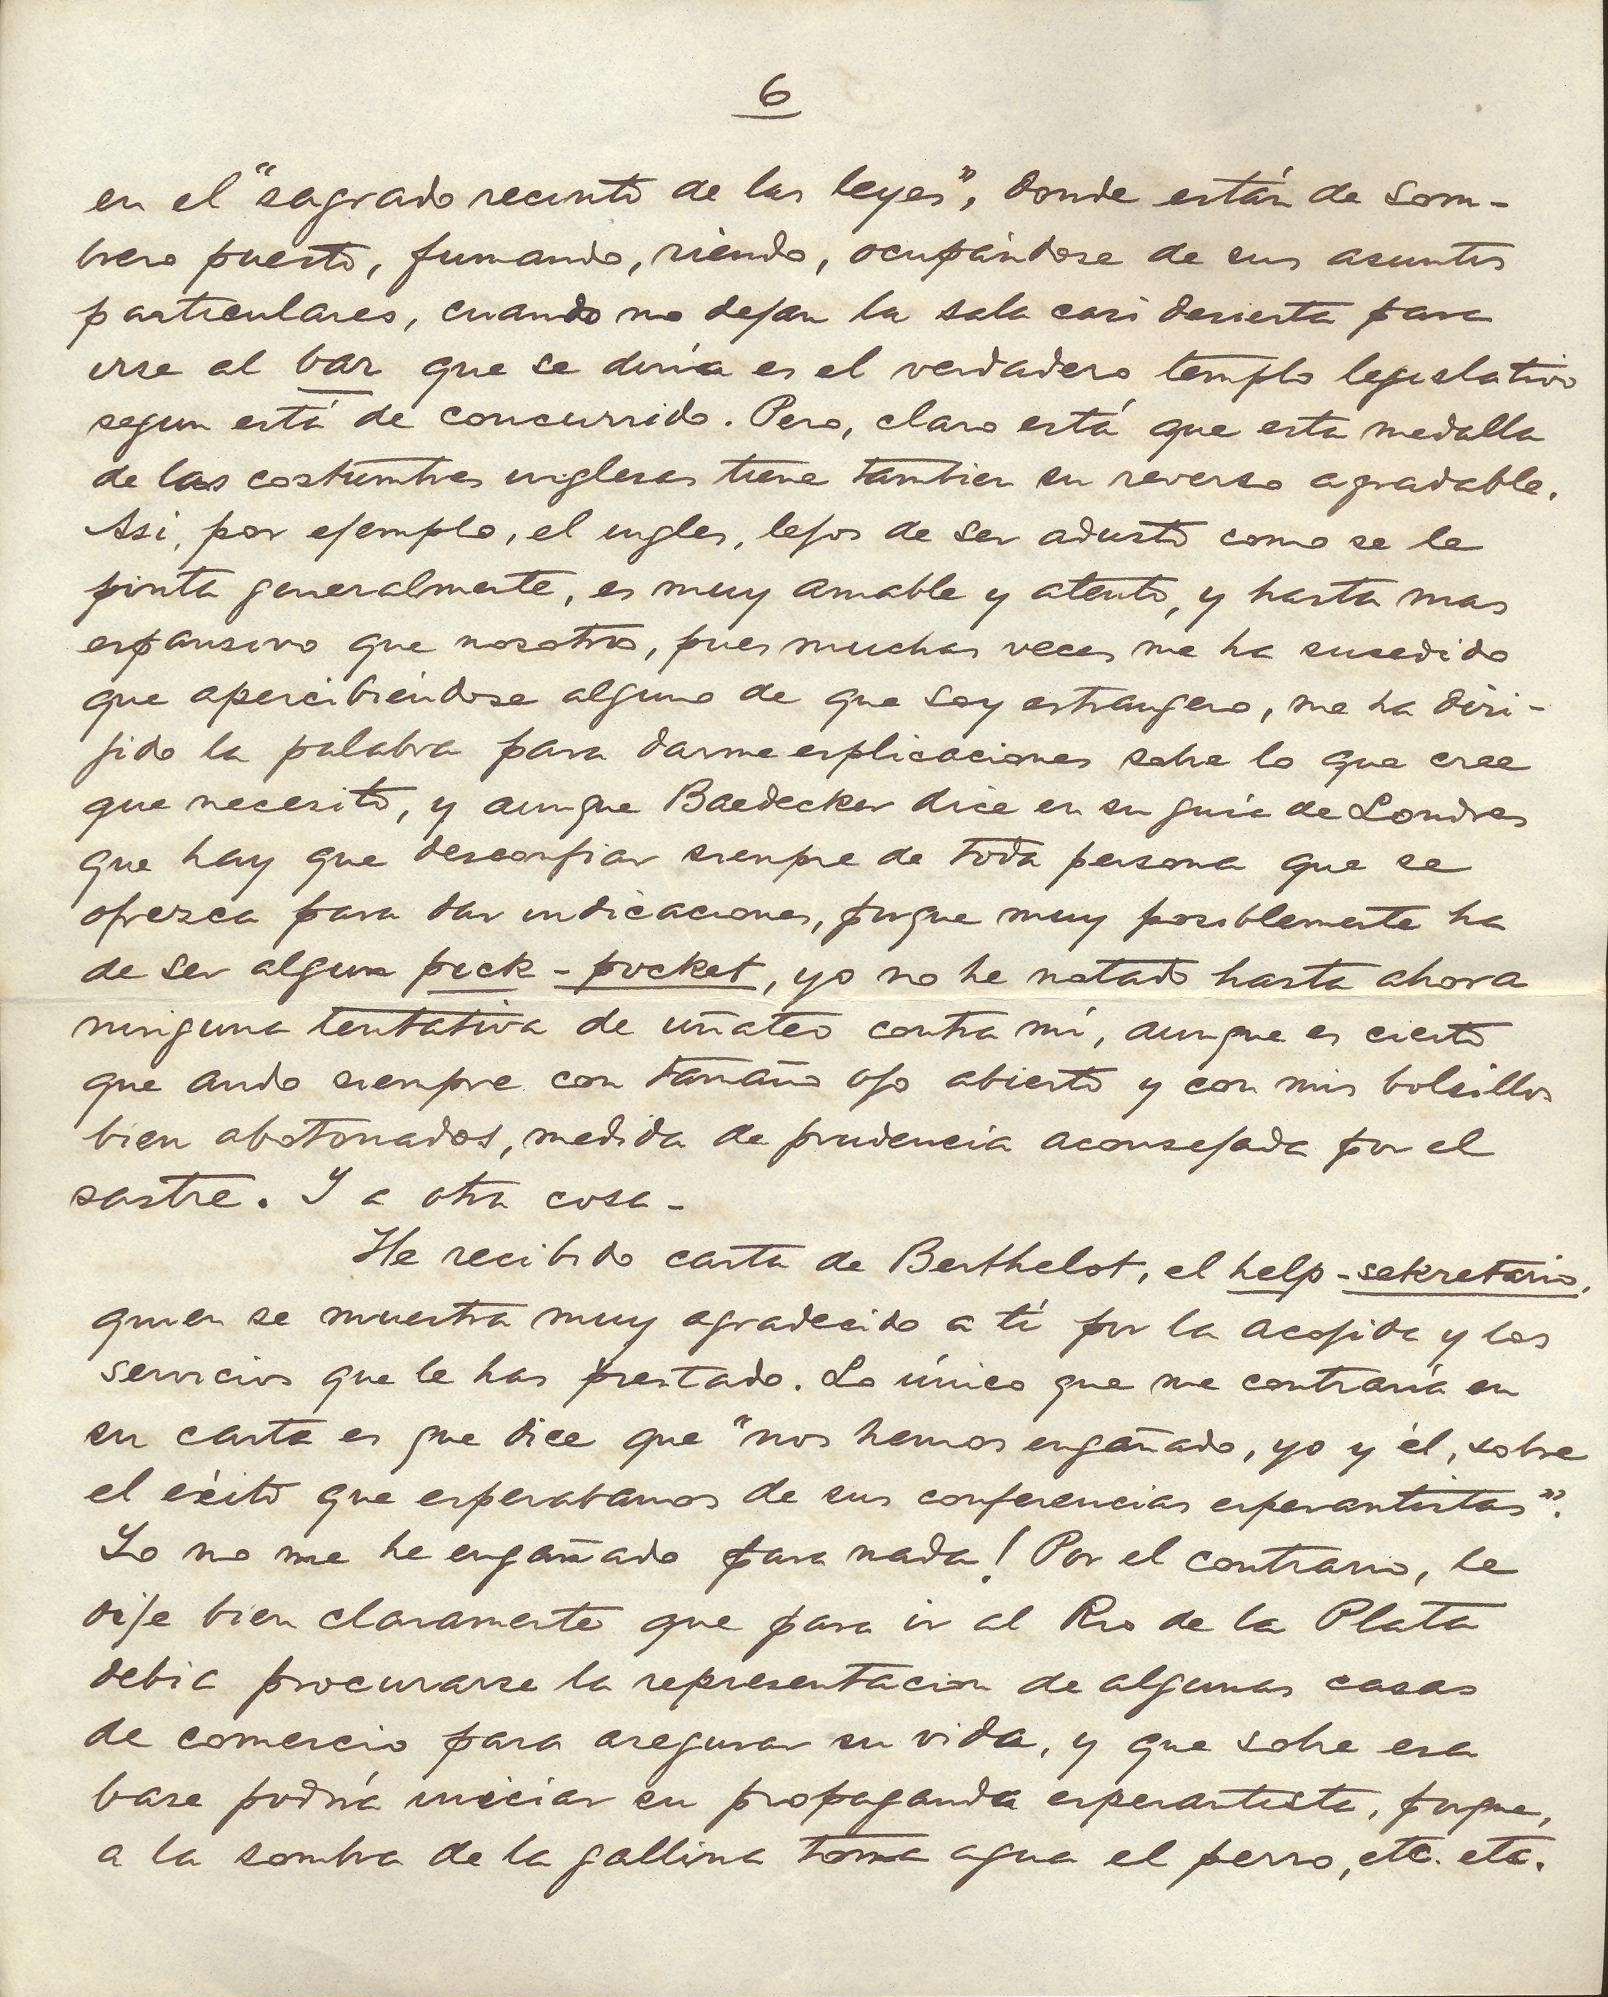 6
en el "sagrado recinto de las leyes", donde están de som-
brero puesto, fumando, riendo, ocupándose de sus asuntos
particulares, cuando no dejan la sala casi desierta para
irse al bar que se diría es el verdadero templo legislativo
segun está de concurrido. Pero, claro está que esta medalla
de las costumbres inglesas tiene tambien su reverso agradable.
Asi, por ejemplo, el ingles, lejos de ser adusto como se le
pinta generalmente, es muy amable y atento, y hasta mas
espansivo que nosotros, pues muchas veces me ha susedido
que apercibiéndose alguno de que soy estrangero, me ha diri-
jido la palabra para darme esplicaciones sobre lo que cree
que necesito, y aunque Baedecker dice en su guía de Londres
que hay que desconfiar siempre de toda persona que se
ofrezca para dar indicaciones, porque muy posiblemente ha
de ser algun pick-pocket, yo no he notado hasta ahora
ninguna tentativa de uñateo contra mí, aunque es cierto
que ando siempre con tamaño ojo abierto y con mis bolsillos
bien abotonados, medida de prudencia aconsejada por el
sastre. Y a otra cosa-
He recibido carta de Berthelot, el help-sekretario,
quien se muestra muy agradecido a tí por la acojida y los
servicios que le has prestado. Lo único que me contraría en
su carta es que dice que "nos hemos engañado, yo y él, sobre
el éxito que esperabamos de sus conferencias esperantistas".
Yo no me he engañado para nada! Por el contrario, le
dije bien claramente que para ir al Rio de la Plata
debia procurarse la representacion de algunas casas
de comercio para asegurar su vida, y que sobre esa
base podría iniciar su propaganda esperantista, porque,
a la sombra de la gallina toma agua el perro, etc. etc.